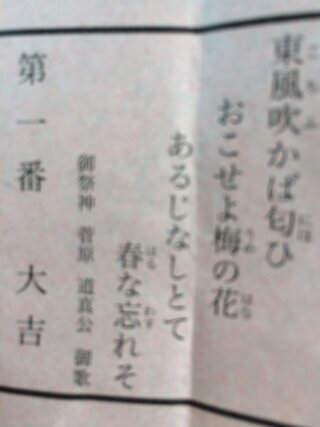 東風吹かば匂ひ
おこせよ梅の花
あるじなしとて
春な忘れそ
御祭神 菅原 道真公 御歌
第一番 大吉